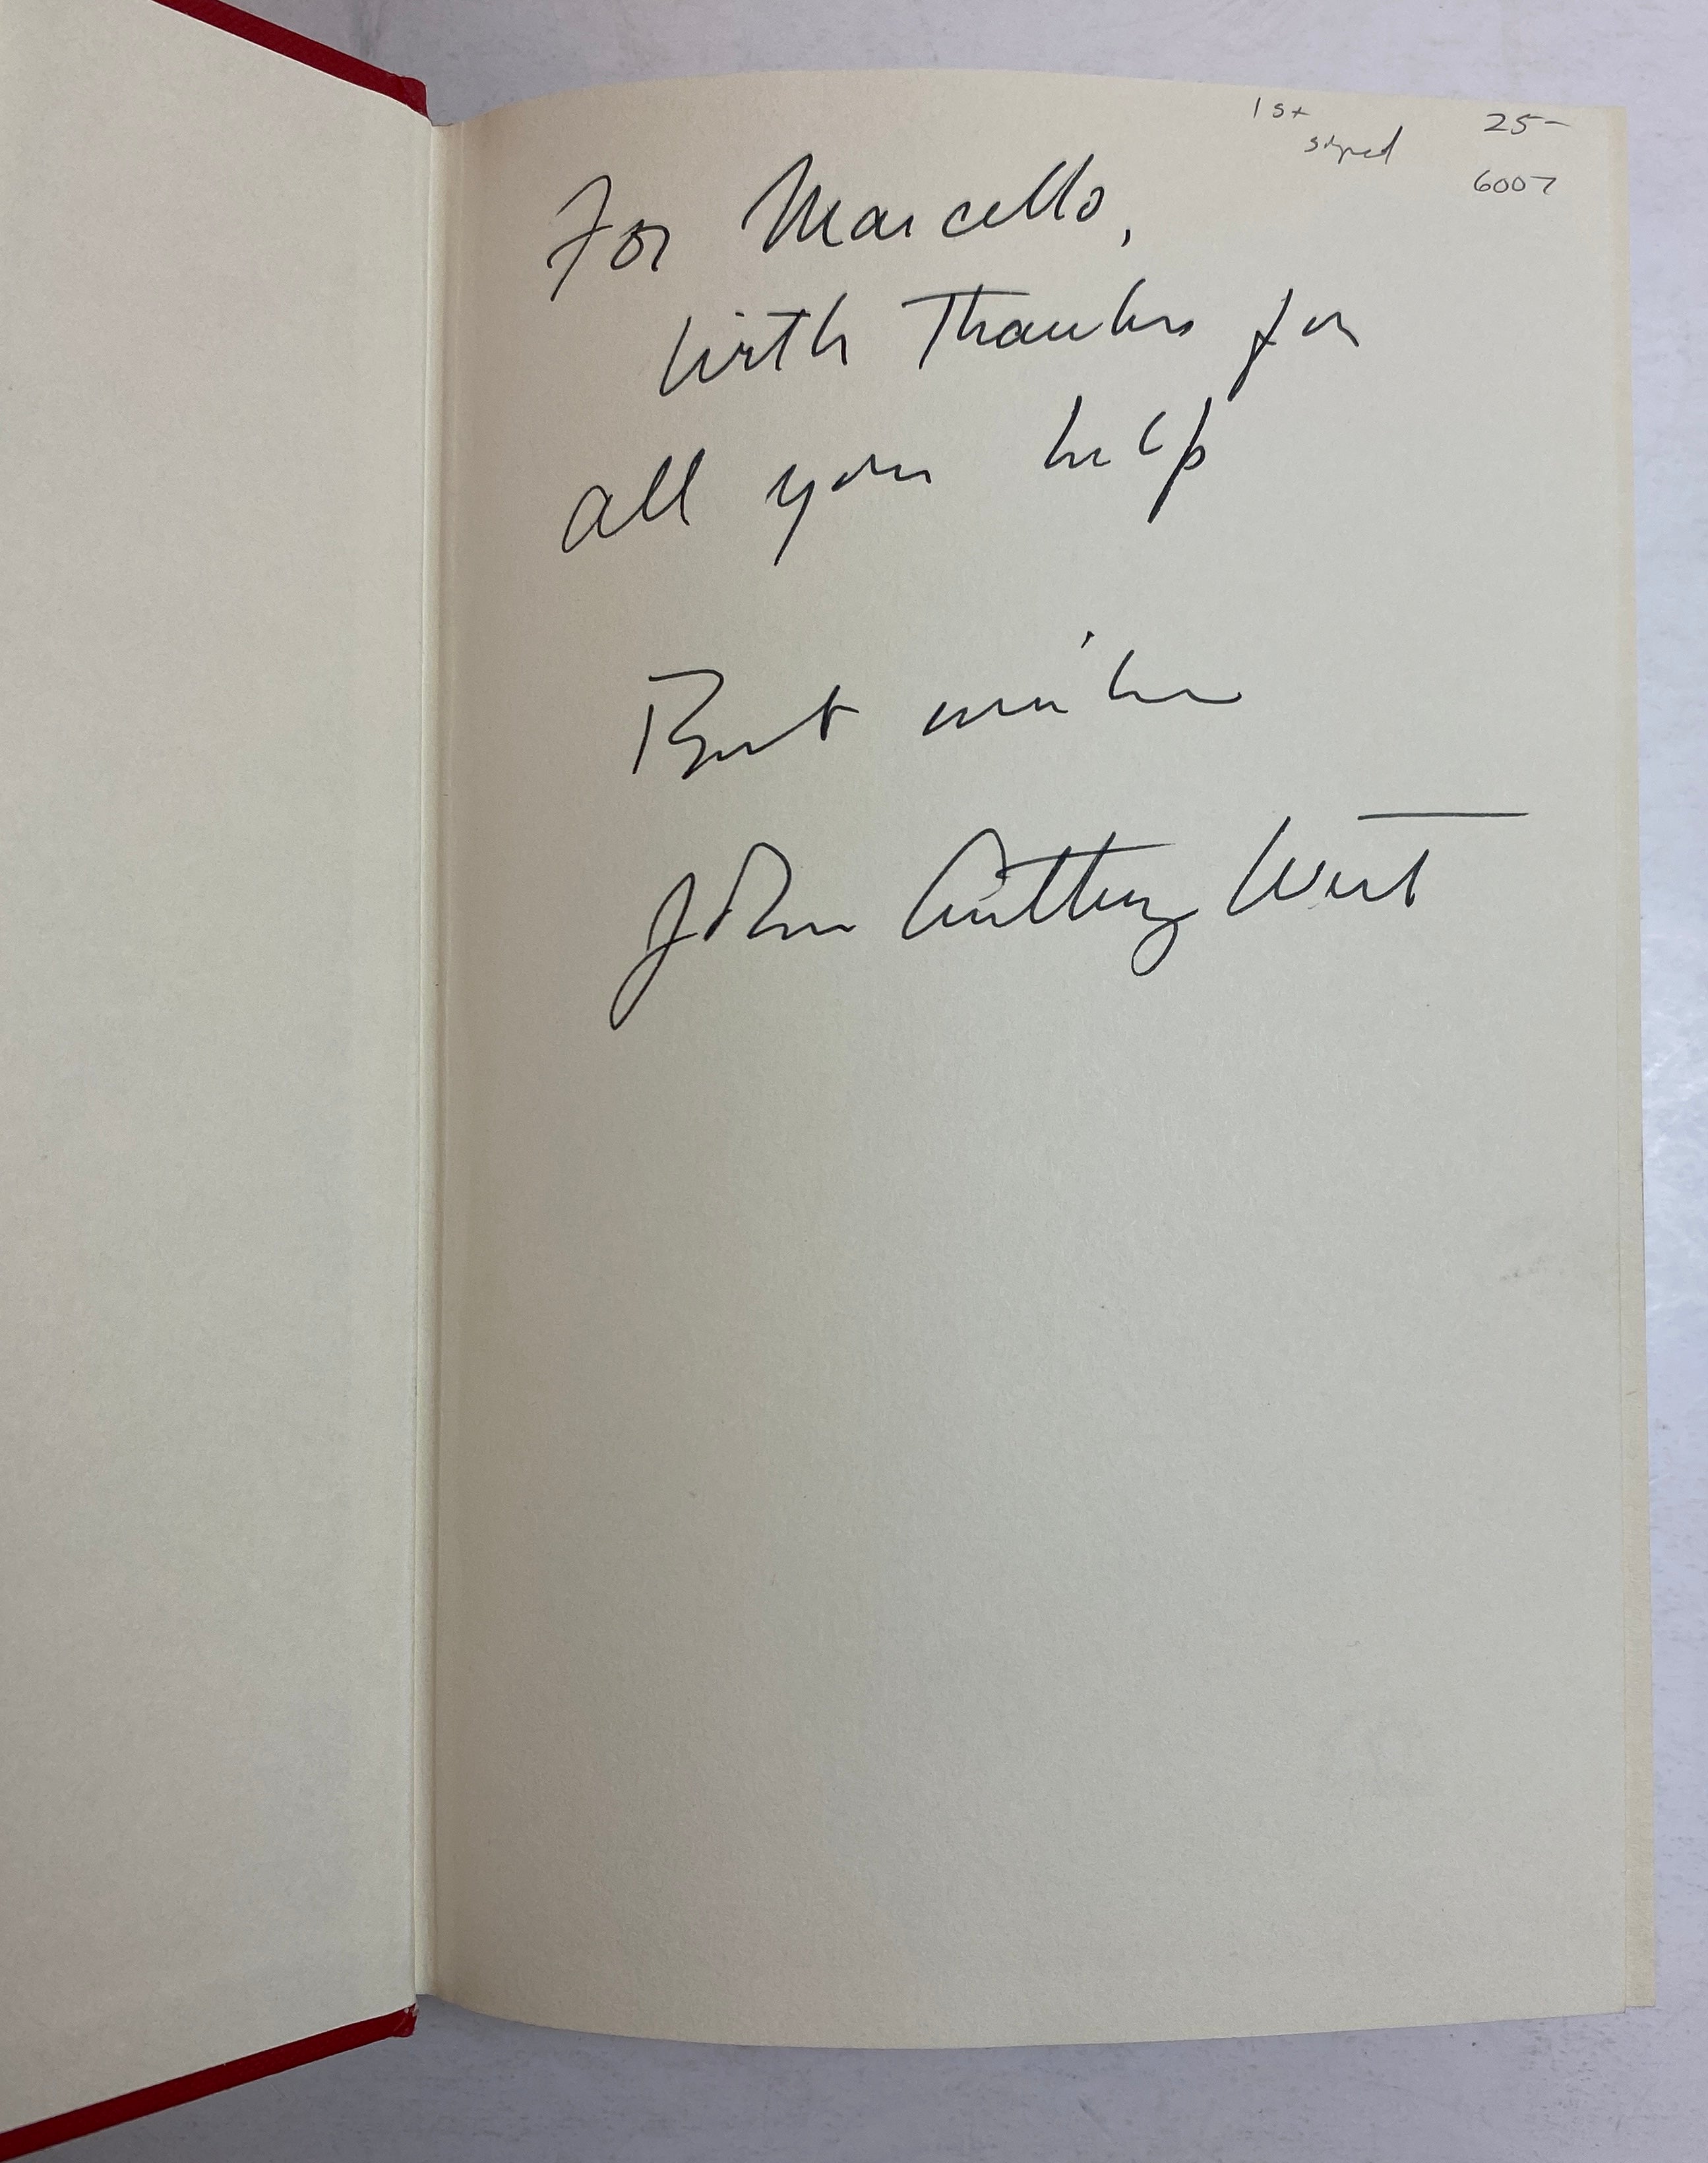 1st
signed
25-
6007
For Marcello,
With Thanks for
all your help
Best wishes
John Anthony West